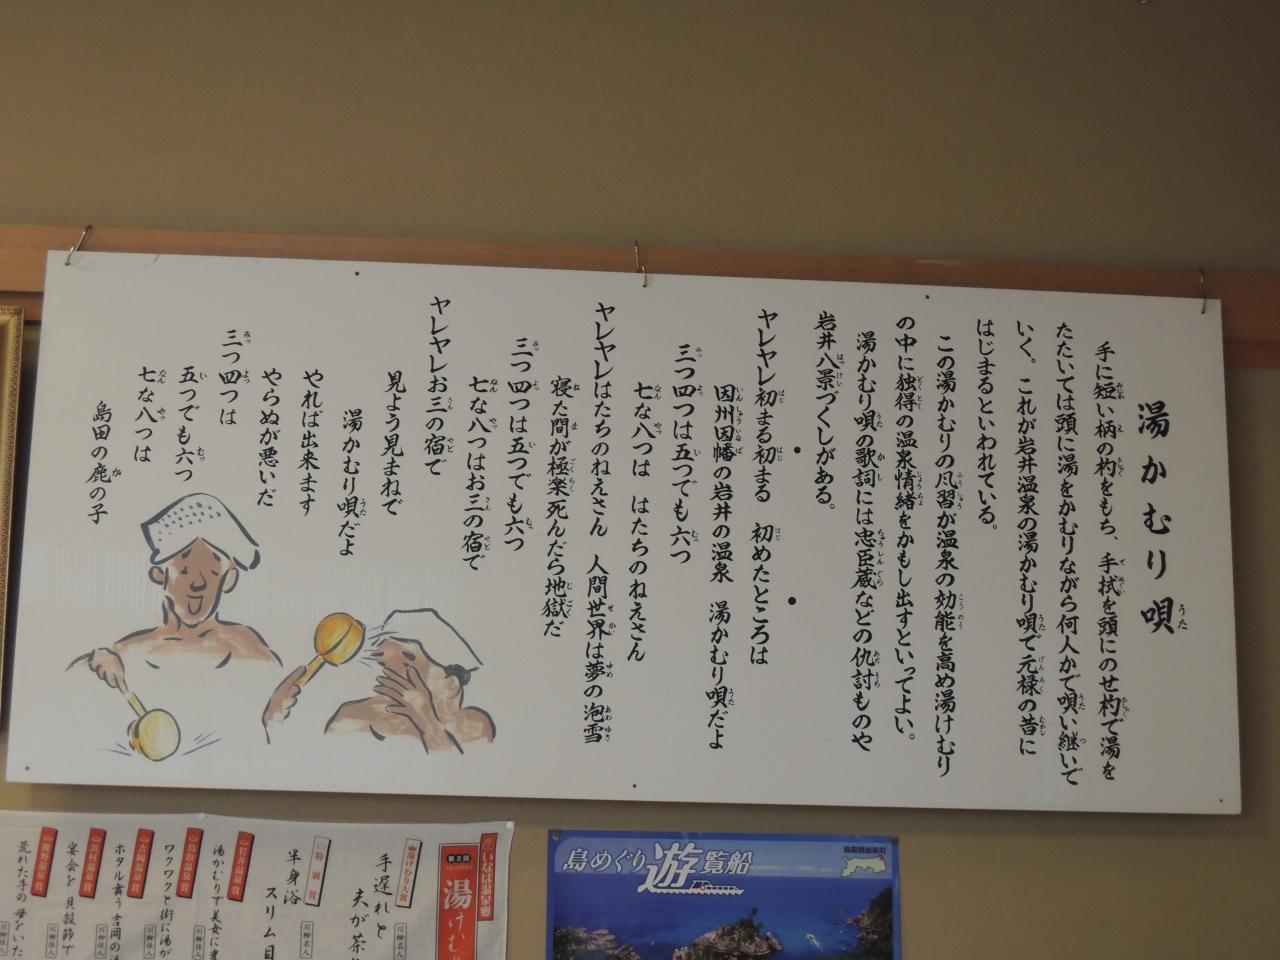 湯かむり唄
手に短い柄の杓をもち、手拭を頭にのせ杓で湯を
たたいては頭に湯をかむりながら何人かで唄い継いで
いく。これが岩井温泉の湯かむり唄で元禄の昔に
はじまるといわれている。
この湯かむりの風習が温泉の効能を高め湯けむり
の中に独得の温泉情緒をかもし出すといってよい。
湯かむり唄の歌詞には忠臣蔵などの仇討ものや
岩井八景づくしがある。
ヤレヤレ初まる初まる 初めたところは
因州因幡の岩井の温泉 湯かむり唄だよ
三つ四つは五つでも六つ
七な八つは はたちのねえさん
ヤレヤレはたちのねえさん 人間世界は夢の泡雪
寝た間が極楽死んだら地獄だ
三つ四つは五つでも六つ
七な八つはお三の宿で
ヤレヤレお三の宿で
見よう見まねで
湯かむり唄だよ
やれば出来ます
やらぬが悪いだ
三つ四つは
五つでも六つ
七な八つは
島田の鹿の子
いなば温泉郷
第2回
湯けむ
湯けむり大賞
川柳名人
手遅れと
夫が茶
特別賞
川柳名人
半身浴
スリム目
岩井温泉賞
川柳佳人
湯かむりで美女に
鳥取温泉賞
川柳佳人
ワクワクと街に湯が
吉岡温泉賞
川柳佳人
ホタル舞う吉岡の
浜村温泉賞
川柳佳人
宴会を貝殻節で
鹿野温泉賞
川柳佳人
荒れた手の母をいた
島めぐり遊覧船
鳥取県岩美町